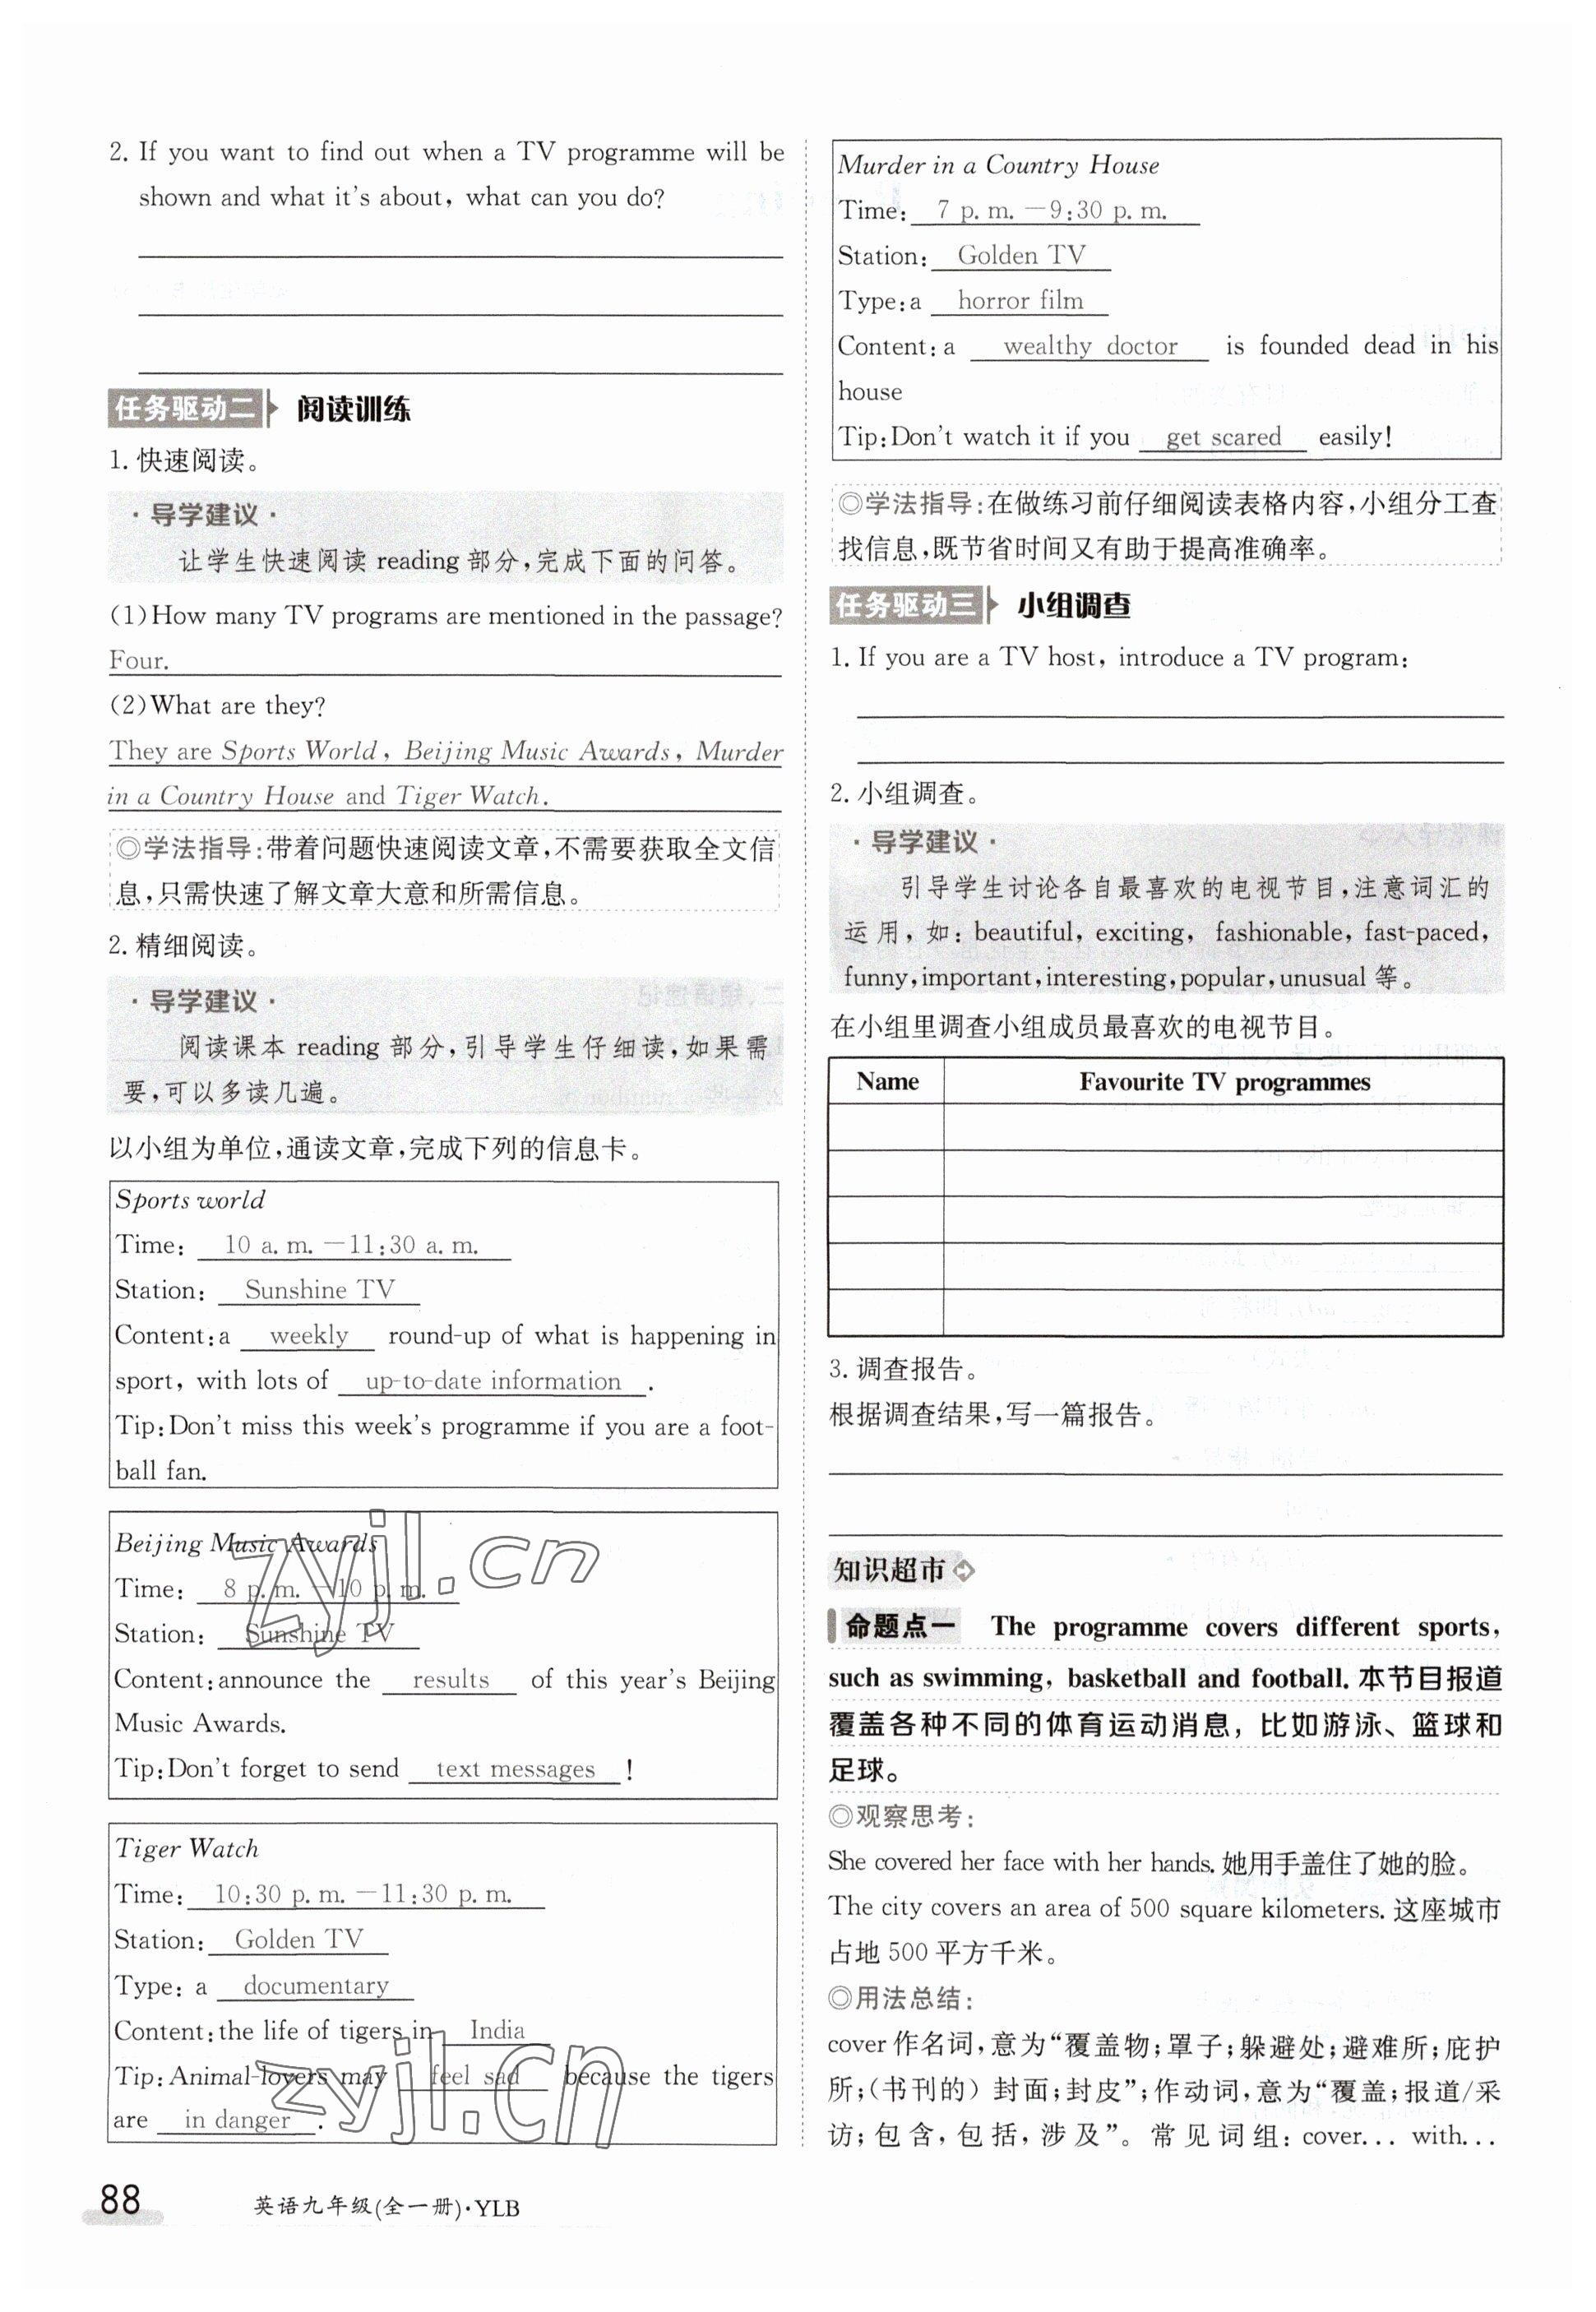 2. If you want to find out when a TV programme will be
shown and what it's about, what can you do?
任务驱动二 阅读训练
1. 快速阅读。
·导学建议·
让学生快速阅读 reading 部分,完成下面的问答。
(1)How many TV programs are mentioned in the passage?
Four.
(2)What are they?
They are Sports World, Beijing Music Awards, Murder
in a Country House and Tiger Watch.
◎学法指导:带着问题快速阅读文章,不需要获取全文信
息,只需快速了解文章大意和所需信息。
2. 精细阅读。
·导学建议·
阅读课本 reading 部分,引导学生仔细读,如果需
要,可以多读几遍。
以小组为单位,通读文章,完成下列的信息卡。
Sports world
Time: 10 a. m. —11:30 a. m.
Station: Sunshine TV
Content:a weekly round-up of what is happening in
sport, with lots of up-to-date information.
Tip:Don't miss this week's programme if you are a foot-
ball fan.
Beijing Music Awards
Time: 8 p. m. —10 p. m.
Station: Sunshine TV
Content:announce the results of this year's Beijing
Music Awards.
Tip:Don't forget to send text messages!
Tiger Watch
Time: 10:30 p. m. —11:30 p. m.
Station: Golden TV
Type: a documentary
Content:the life of tigers in India
Tip:Animal-lovers may feel sad because the tigers
are in danger.
88
英语九年级(全一册)·YLB
Murder in a Country House
Time: 7 p. m. —9:30 p. m.
Station: Golden TV
Type:a horror film
Content: a wealthy doctor is founded dead in his
house
Tip:Don't watch it if you get scared easily!
◎学法指导:在做练习前仔细阅读表格内容,小组分工查
找信息,既节省时间又有助于提高准确率。
任务驱动三 小组调查
1. If you are a TV host, introduce a TV program:
2. 小组调查。
·导学建议·
引导学生讨论各自最喜欢的电视节目,注意词汇的
运用,如: beautiful, exciting, fashionable, fast-paced,
funny,important,interesting,popular,unusual 等。
在小组里调查小组成员最喜欢的电视节目。
Name Favourite TV programmes
3. 调查报告。
根据调查结果,写一篇报告。
知识超市
命题点一 The programme covers different sports,
such as swimming, basketball and football. 本节目报道
覆盖各种不同的体育运动消息,比如游泳、篮球和
足球。
◎观察思考:
She covered her face with her hands. 她用手盖住了她的脸。
The city covers an area of 500 square kilometers. 这座城市
占地 500 平方千米。
◎用法总结:
cover 作名词,意为“覆盖物;罩子;躲避处;避难所;庇护
所;(书刊的)封面;封皮”;作动词,意为“覆盖;报道/采
访;包含,包括,涉及”。常见词组: cover... with...
zyjl.cn
zyjl.cn